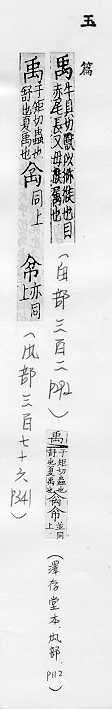 玉篇
禺 牛具切獸似獼猴也目
赤尾長又母猴屬也
(甶部三百二 P292)
禹 于矩切蟲也
舒也夏禹也
同上
亦同上
(禸部三百七十六 P341)
禹 于矩切蟲也
舒也夏禹也
並同上
(澤存堂本,禸部, P112)